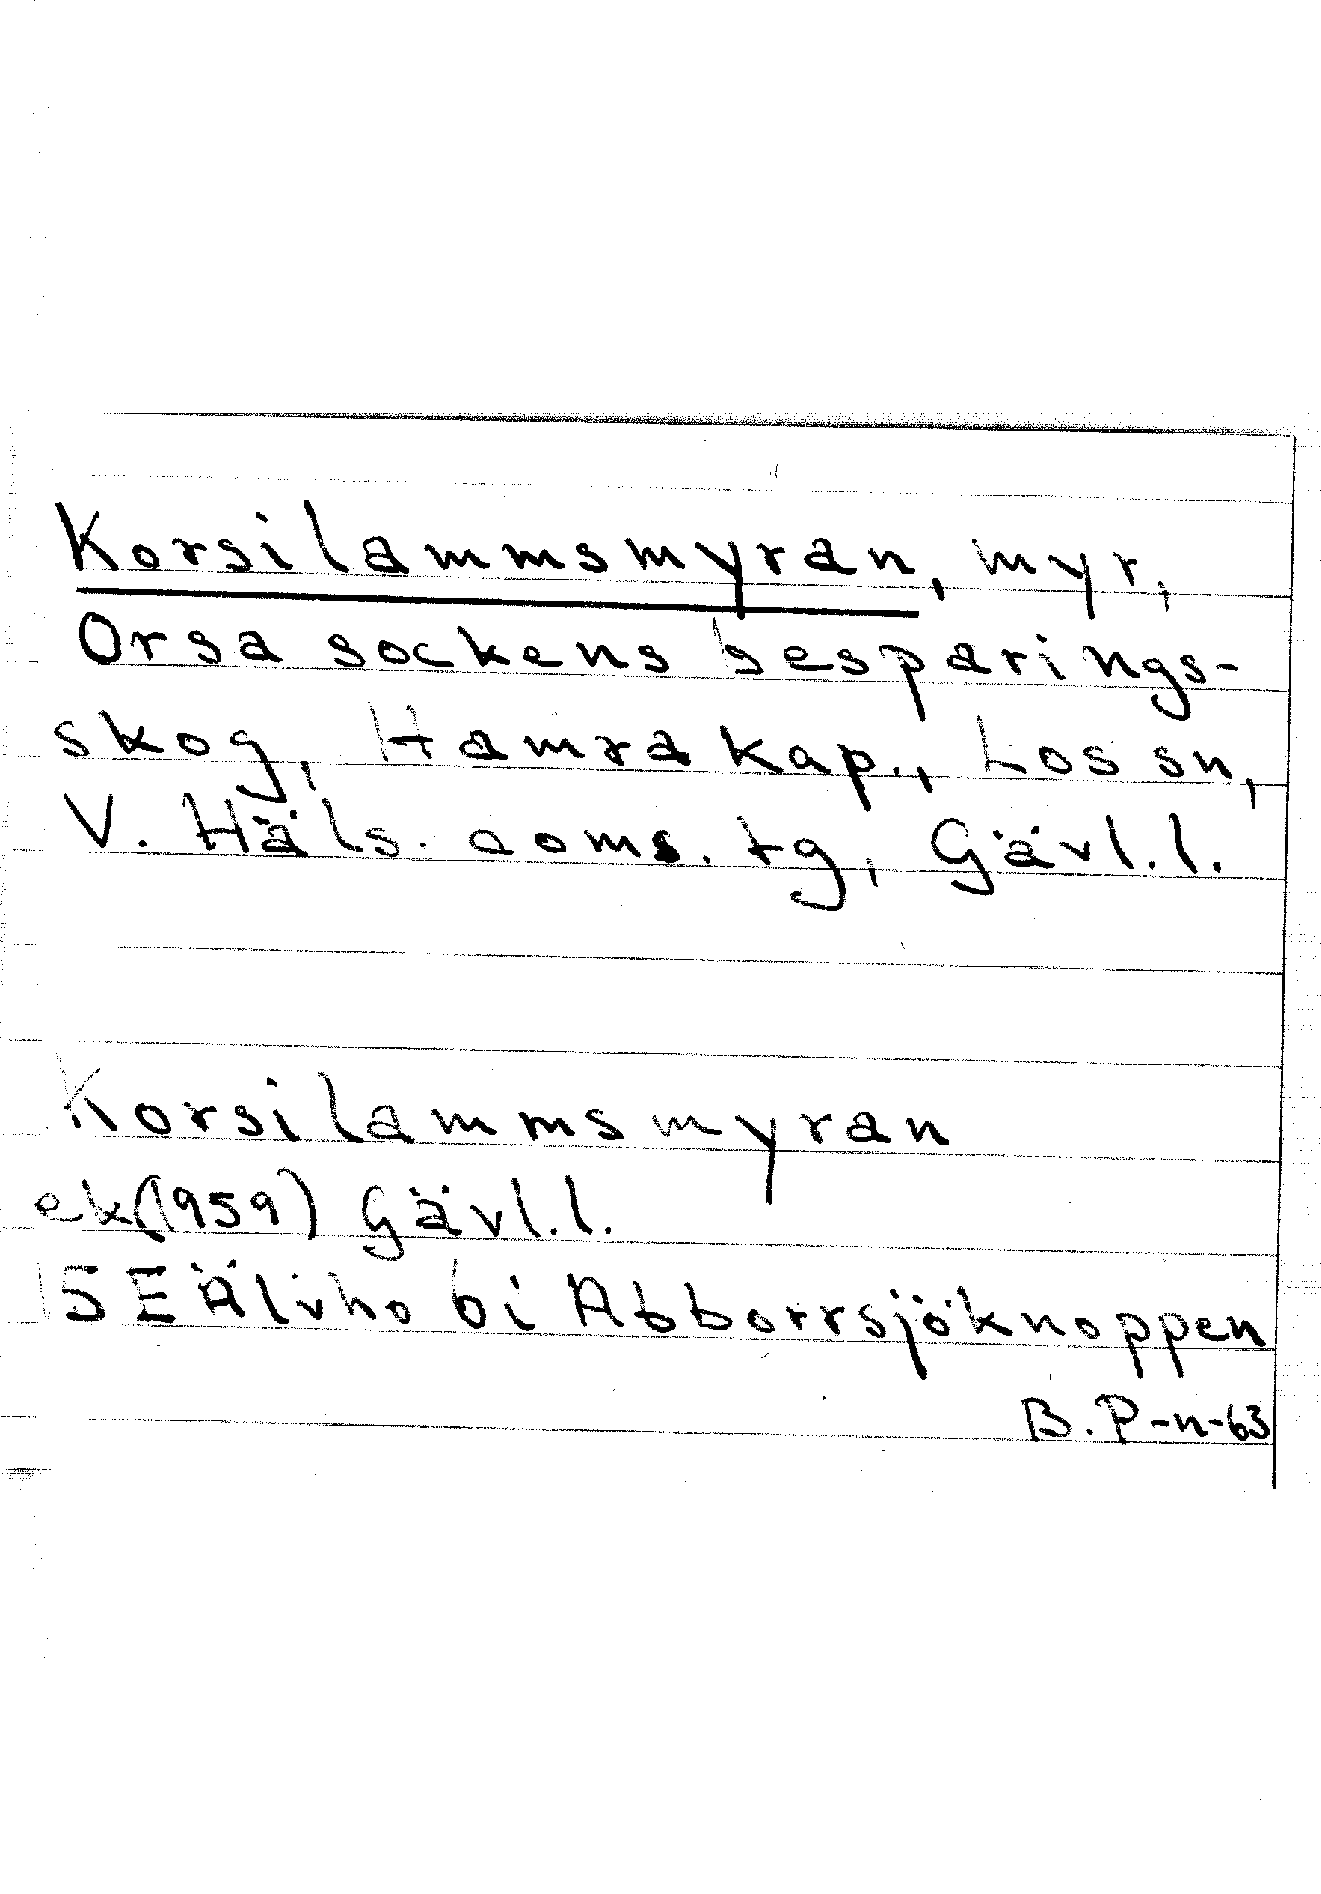 Korsilammsmyran, myr,
Orsa sockens besparings-
skog, Hamra kap., Los sn,
V. Häls. doms. tg, Gävl.l.
Korsilammsmyran
ek(1959) Gävl.l.
15E Älvho 6i Abborrsjöknoppen
B.P-n-63